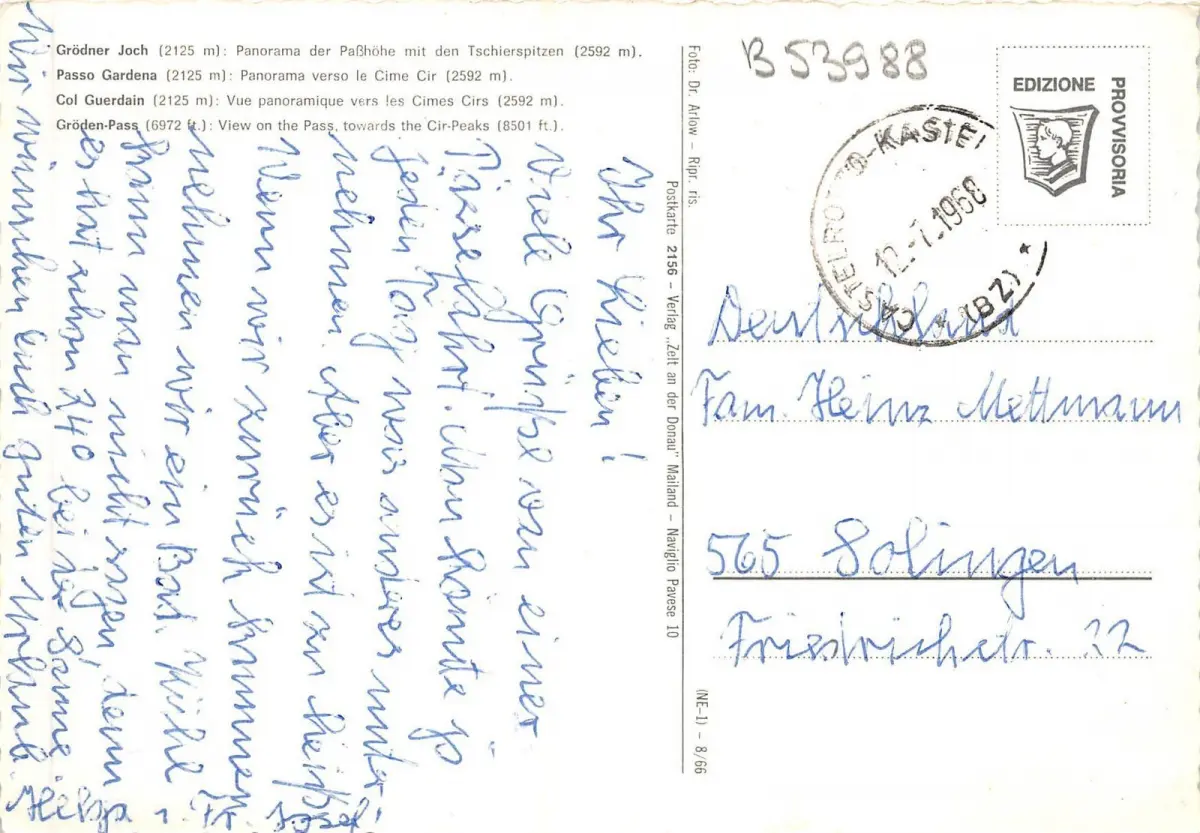 Grödner Joch (2125 m): Panorama der Paßhöhe mit den Tschierspitzen (2592 m).
Passo Gardena (2125 m): Panorama verso le Cime Cir (2592 m).
Col Guerdain (2125 m): Vue panoramique vers les Cimes Cirs (2592 m).
Gröden-Pass (6972 ft.): View on the Pass, towards the Cir-Peaks (8501 ft.).
Ihr Lieben!
Viele Grüße von einer
Passfahrt. Man könnte ja
jeden Tag was anderes unter-
nehmen. Aber es ist zu heiß.
Wenn wir zurück kommen
nehmen wir ein Bad. Kühl
kann man nicht sagen, denn
es hat schon 240 bei der Sonne.
Wir wünschen Euch guten Urlaub.
Helga u. Fr. Josef
Foto: Dr. Arlow – Ripr. ris.
Postkarte 2156 – Verlag „Zelt an der Donau" Mailand – Naviglio Pavese 10
(NE-1) – 8/66
B 53988
EDIZIONE
PROVVISORIA
CASTELRO TTO-KASTEL
12.-7.1968
* (BZ) *
Deutschland
Fam. Heinz Mettmann
565 Solingen
Friedrichstr. 22